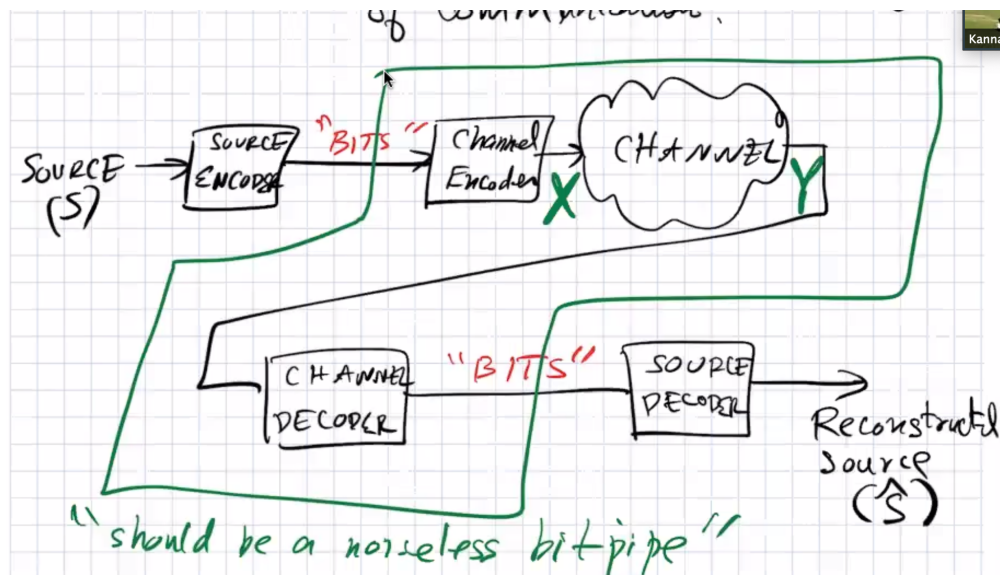 of communication.
Kanna
SOURCE
(S)
SOURCE
ENCODER
"BITS"
Channel
Encoder
X
CHANNEL
Y
CHANNEL
DECODER
"BITS"
SOURCE
DECODER
Reconstructd
source
(Ŝ)
"should be a noiseless bit-pipe"